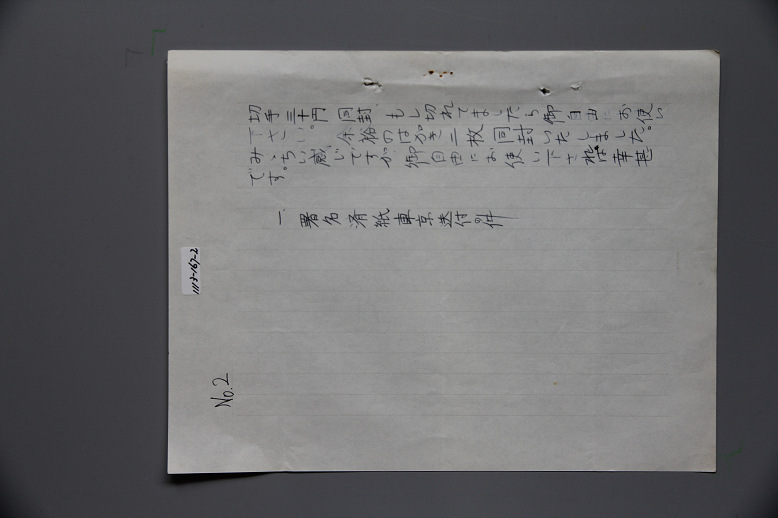 切手三十円同封、もし切れてましたら御自由にお使い
下さい。余裕のはがき二枚同封いたしました。
みゝちい感じですが、御自由にお使い下されば幸甚
です。
一、署名済紙東京送付の件
No.2
1113-167-2